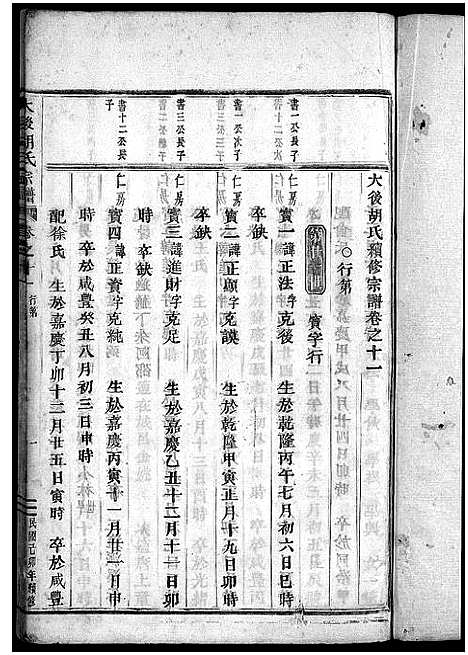 大後胡氏續修宗譜卷之十一
○行第
寳字行
書一公長子
書十二公
仁房
寳一諱正法字克後 生於乾隆丙午七月初六日巳時
卒缺
書一公次子
仁房
寳二諱正順字克謨 生於乾隆甲寅正月十九日卯時
卒缺
書三公子
仁房
寳三諱進財字克足 生於嘉慶乙丑十二月十一日卯
時 卒缺
書十二公長子
仁房
寳四諱正資字克純 生於嘉慶丙寅十一月廿一日申
時 卒於咸豊癸丑八月初三日申時
配徐氏 生於嘉慶丁卯十二月廿五日寅時 卒於咸豊
大後胡氏宗譜
卷之十一 行第
一
民國己卯年續修